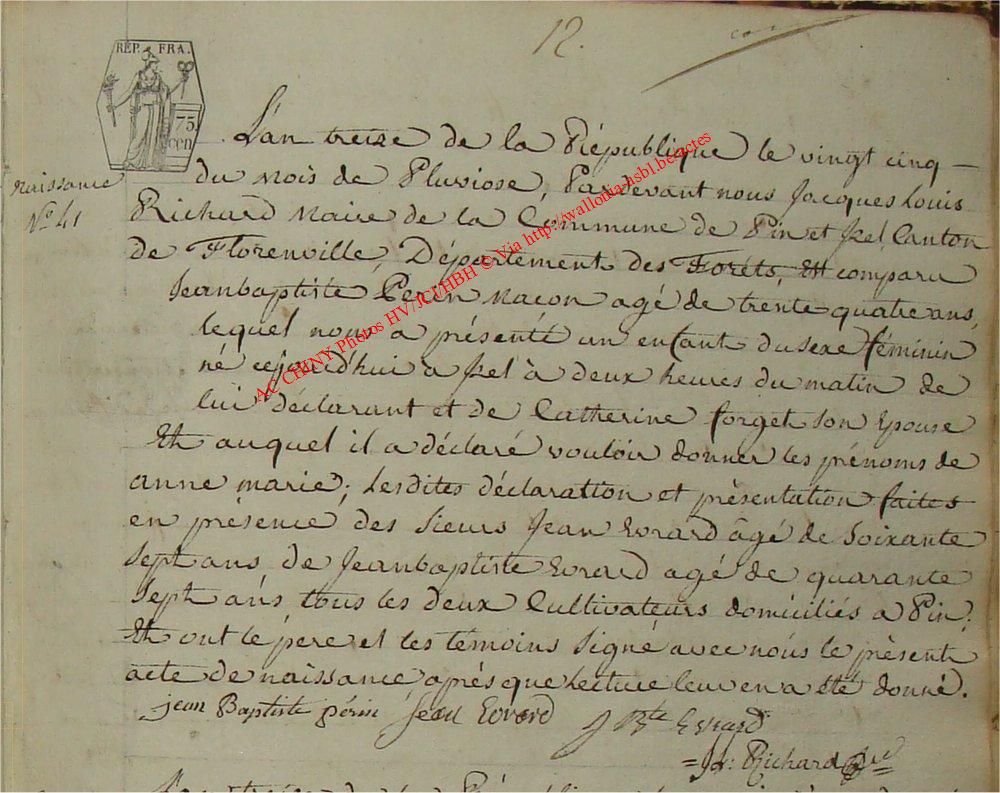 12.
RÉP. FRA.
75
cen
naissance
No. 41
L'an treize de la République le vingt cinq
du Mois de Pluviose, Pardevant nous Jacques Louis
Richard Maire de la Commune de Pin et Izel Canton
de Florenville, Département des Forêts, Est comparu
Jeanbaptiste Perin Macon agé de trente quatre ans,
lequel nous a présenté un enfant du sexe féminin
né cejourd'hui a Izel à deux heures du matin de
lui déclarant et de Catherine forget son Epouse
Et auquel il a déclaré vouloir donner les prénoms de
anne marie; Lesdites déclaration et présentation faites
en présence des Sieurs Jean Evrard âgé de Soixante
Sept ans de Jeanbaptiste Evrard agé de quarante
Sept ans tous les deux Cultivateurs domiciliés a Pin;
Et ont le pere et les témoins Signé avec nous le présent
acte de naissance aprés que Lecture leur en a été donné.
jean Baptiste périn Jean Evrard J Bte Evrard
Richard
AC CHINY Photos HV/JCI/HBH © Via http://wallonia-asbl.be/actes